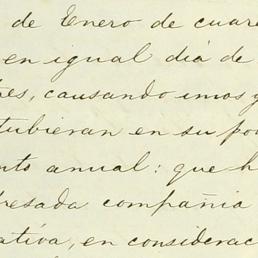 de Enero de cuare
en igual dia de
es, causando unos y
tubieran en su po
nto anual: que h
resada compañia
ativa, en considerac